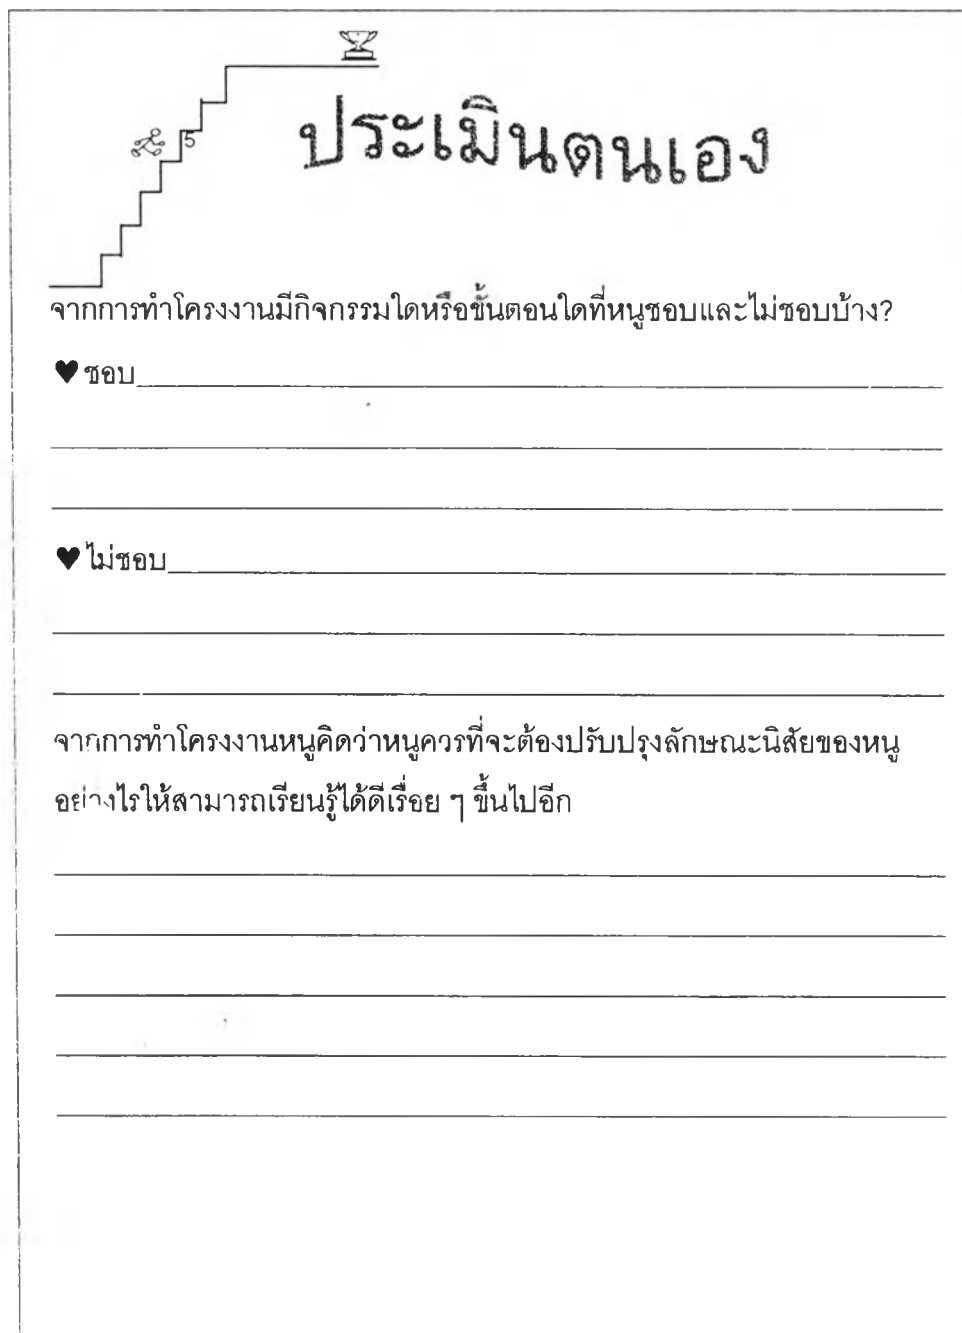 5
ประเมินตนเอง
จากการทำโครงงานมีกิจกรรมใดหรือขั้นตอนใดที่หนูชอบและไม่ชอบบ้าง?
♥ ชอบ
♥ ไม่ชอบ
จากการทำโครงงานหนูคิดว่าหนูควรที่จะต้องปรับปรุงลักษณะนิสัยของหนู
อย่างไรให้สามารถเรียนรู้ได้ดีเรื่อย ๆ ขึ้นไปอีก